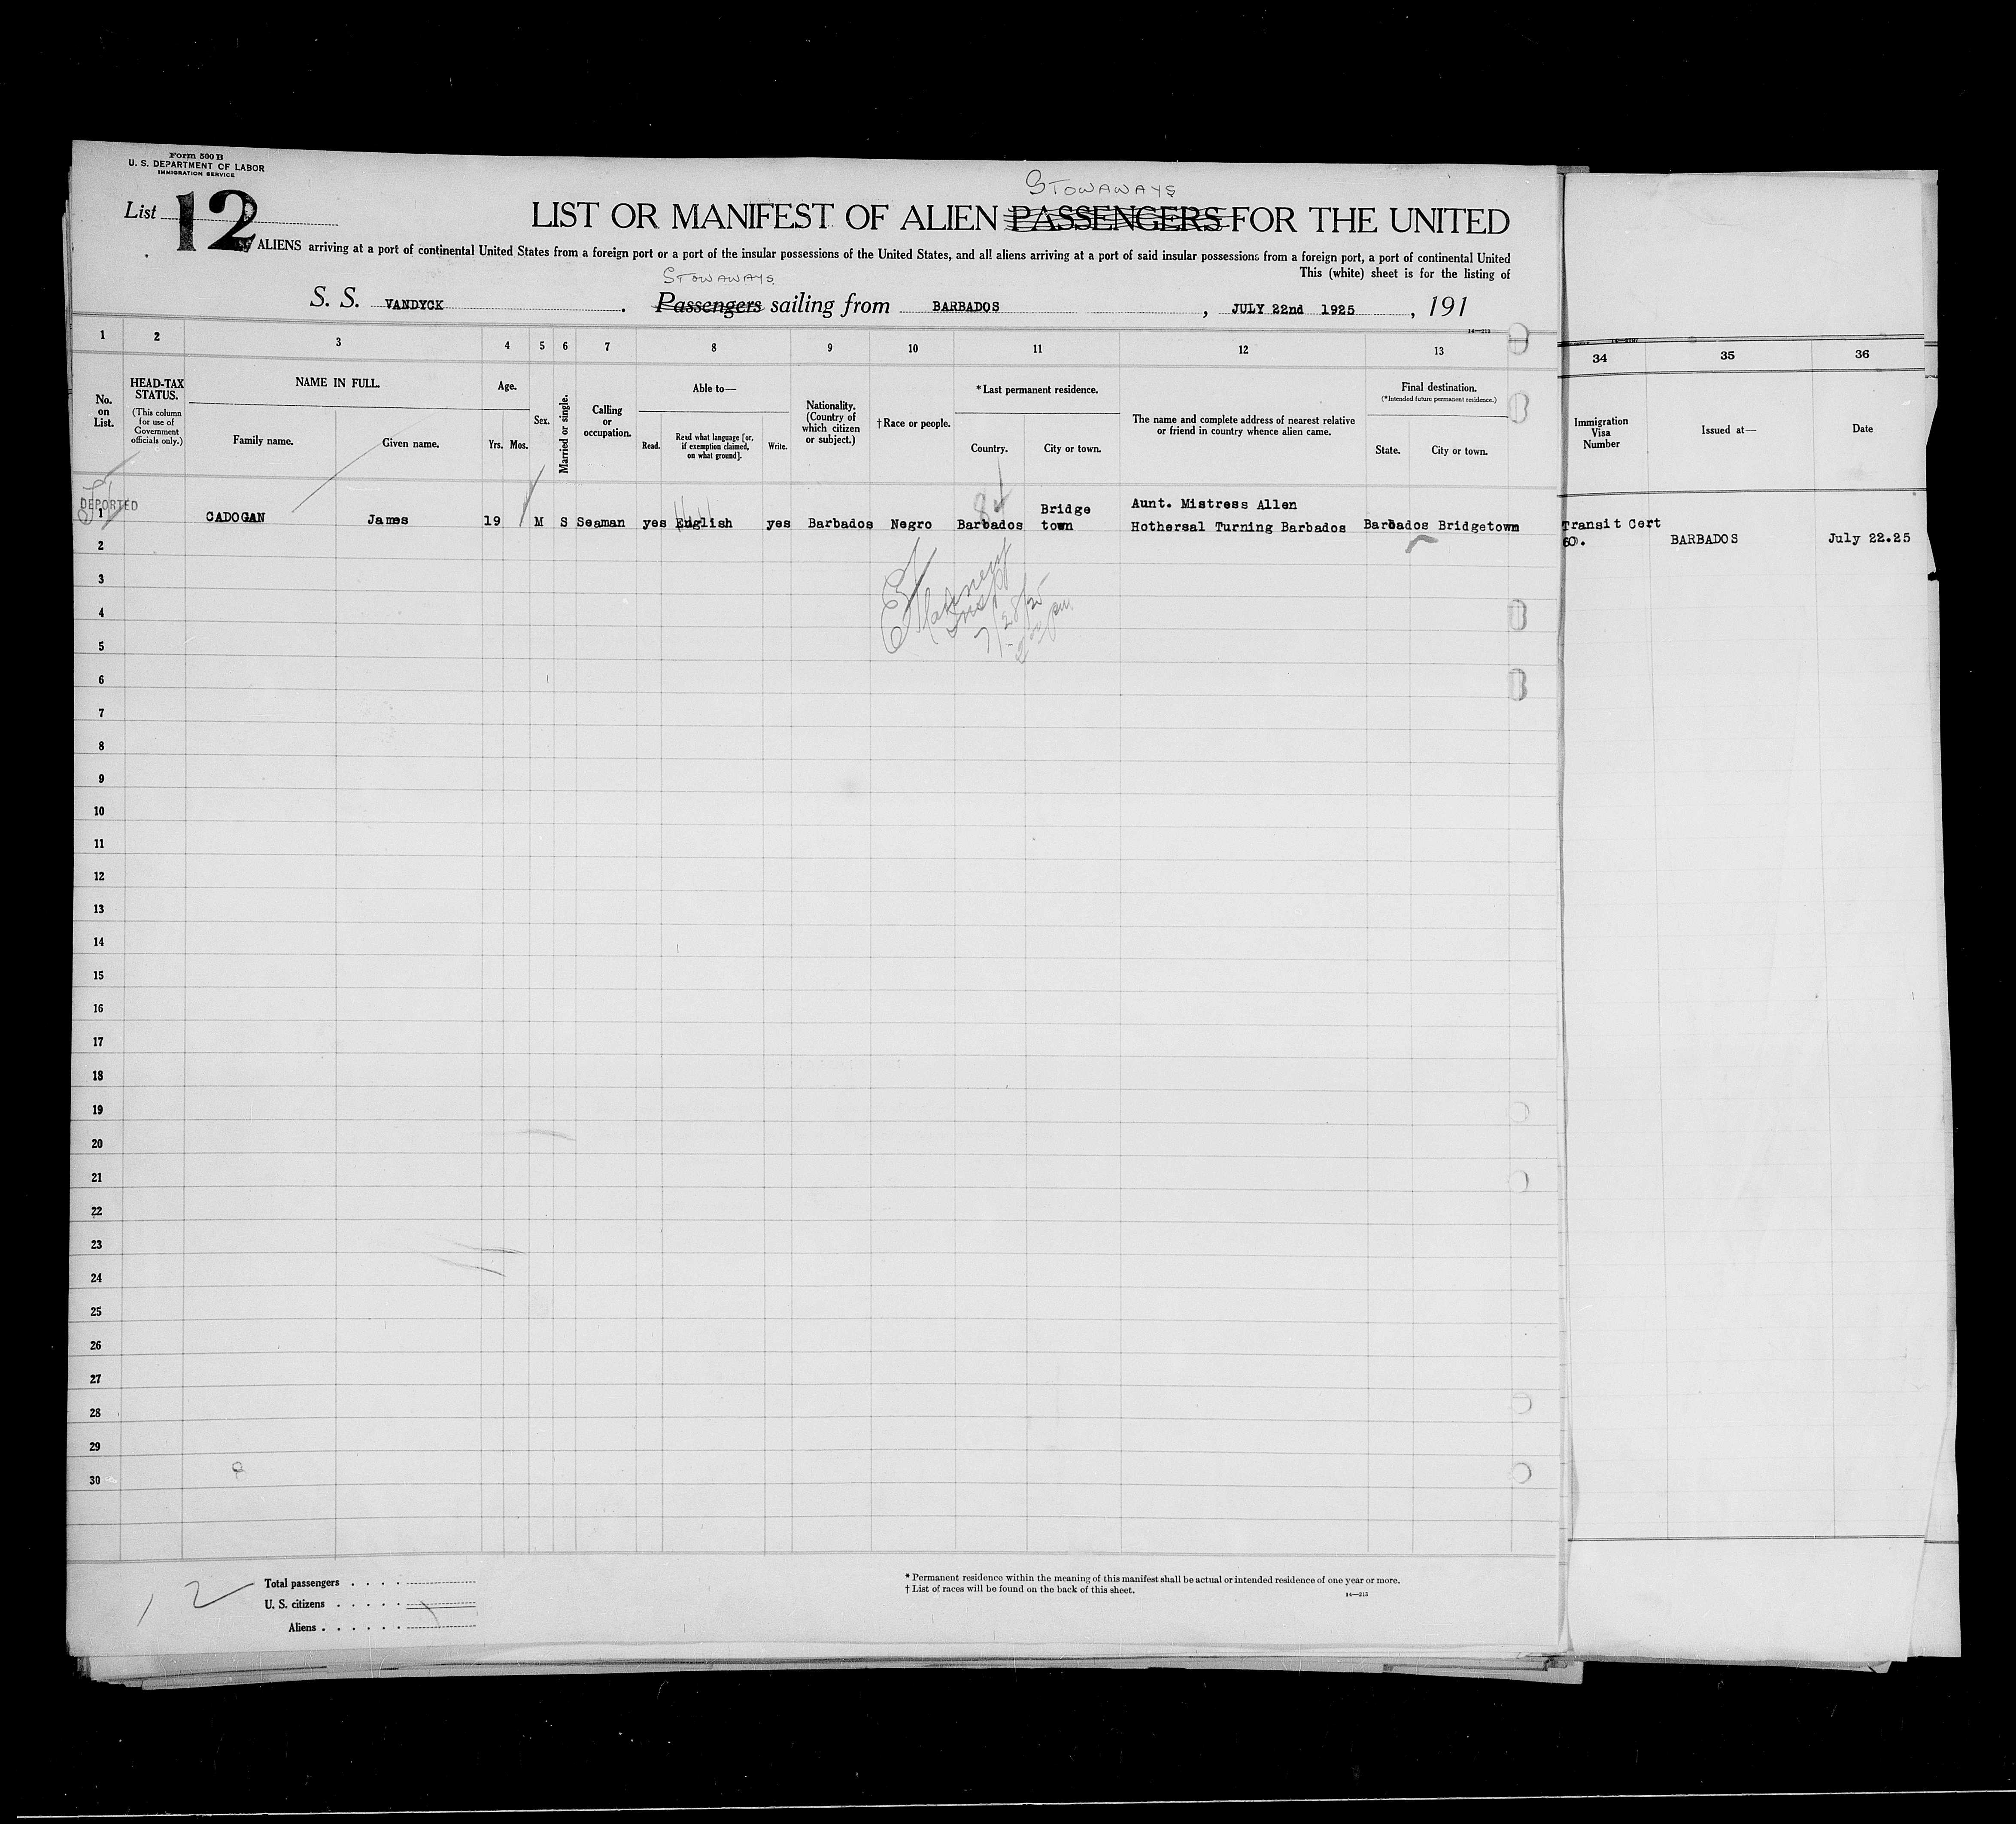 Form 500 B
U. S. DEPARTMENT OF LABOR
IMMIGRATION SERVICE
List 12
STOWAWAYS
LIST OR MANIFEST OF ALIEN PASSENGERS FOR THE UNITED
ALIENS arriving at a port of continental United States from a foreign port or a port of the insular possessions of the United States, and all aliens arriving at a port of said insular possessions from a foreign port, a port of continental United
This (white) sheet is for the listing of
STOWAWAYS
S. S. VANDYCK . Passengers sailing from BARBADOS , JULY 22nd 1925 , 191
14—213
1 2 3 4 5 6 7 8 9 10 11 12 13 34 35 36
No. on List.
HEAD-TAX STATUS.
(This column for use of Government officials only.)
NAME IN FULL.
Family name. Given name.
Age.
Yrs. Mos.
Sex.
Married or single.
Calling or occupation.
Able to—
Read. Read what language [or, if exemption claimed, on what ground]. Write.
Nationality. (Country of which citizen or subject.)
†Race or people.
*Last permanent residence.
Country. City or town.
The name and complete address of nearest relative or friend in country whence alien came.
Final destination.
(*Intended future permanent residence.)
State. City or town.
Immigration Visa Number
Issued at—
Date
DEPORTED
1 CADOGAN James 19 M S Seaman yes English yes Barbados Negro Barbados Bridge town Aunt. Mistress Allen Hothersal Turning Barbados Barbados Bridgetown Transit Cert 60. BARBADOS July 22.25
2
3
4
5
6
7
8
9
10
11
12
13
14
15
16
17
18
19
20
21
22
23
24
25
26
27
28
29
30
12
Total passengers . . . .
U. S. citizens . . . . .
Aliens . . . . . .
* Permanent residence within the meaning of this manifest shall be actual or intended residence of one year or more.
† List of races will be found on the back of this sheet.
14—213